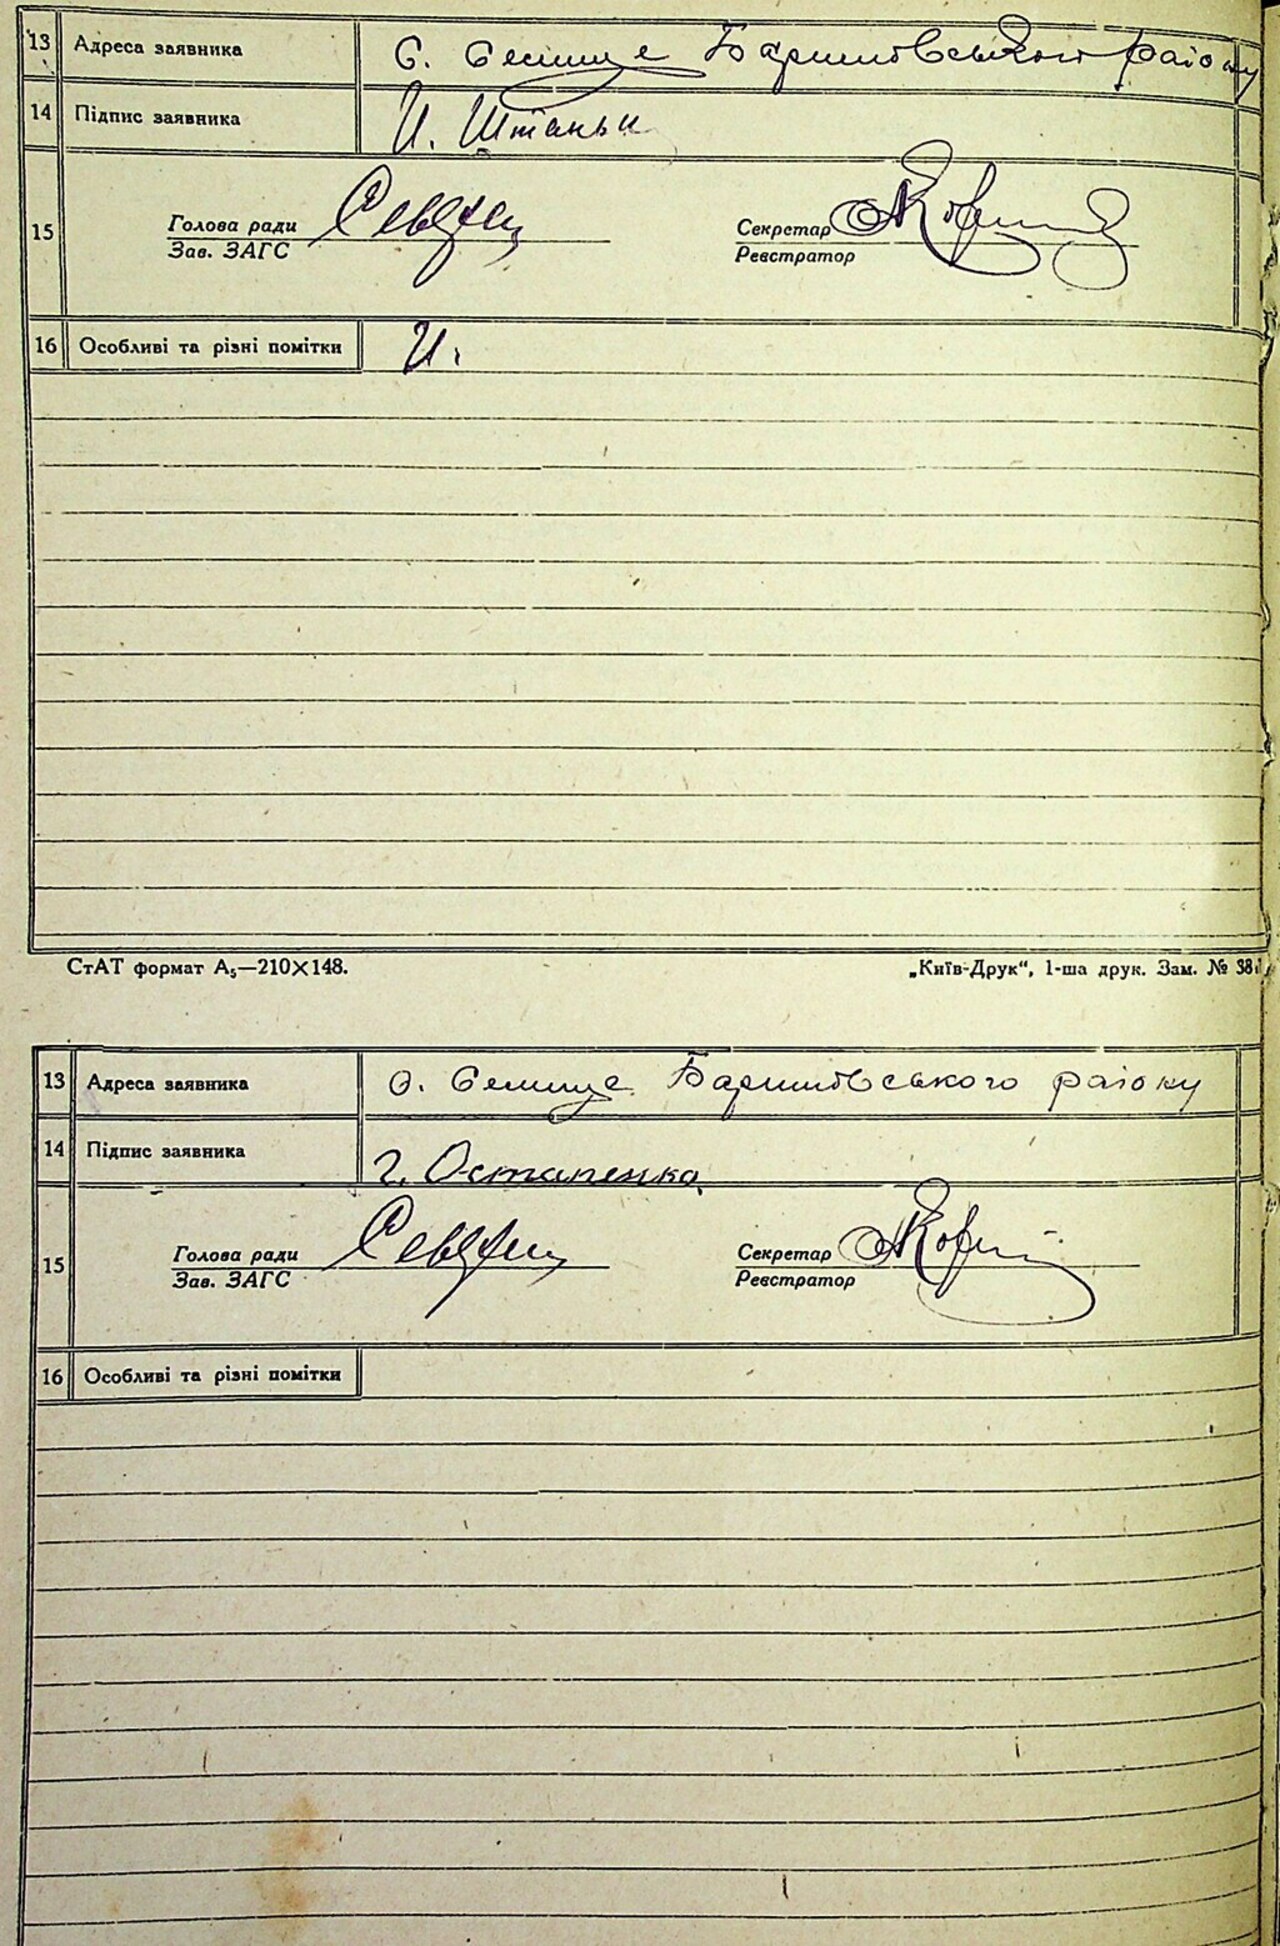 13 Адреса заявника С. Селище Баришівського району
14 Підпис заявника И. Штаньк
15 Голова ради Секретар
Зав. ЗАГС Реєстратор
16 Особливі та різні помітки И.
СтАТ формат А₅—210×148. „Київ-Друк“, 1-ша друк. Зам. № 38
13 Адреса заявника с. Селище Баришівського району
14 Підпис заявника Г. Остапенко
15 Голова ради Секретар
Зав. ЗАГС Реєстратор
16 Особливі та різні помітки